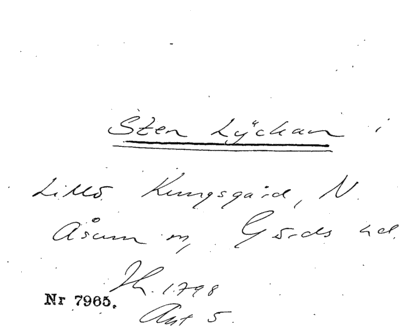 Sten Lÿckan i
Lillö Kungsgård, N.
Åsum s, Gärds hd.
Jh. 1798
Nr 7965.
Akt 5.